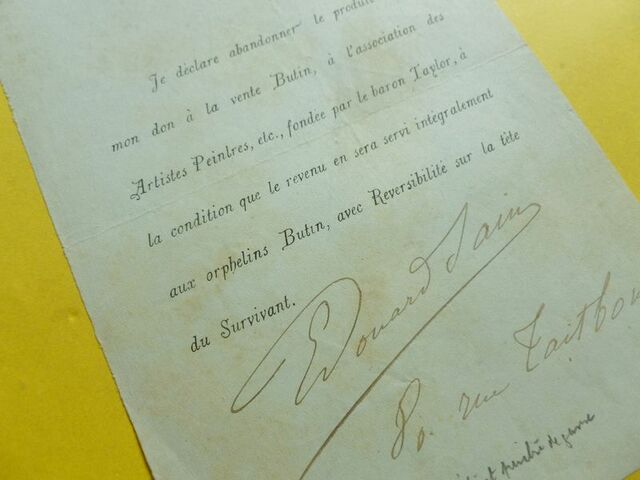 Je déclare abandonner le produit
mon don à la vente Butin, à l'association des
Artistes Peintres, etc., fondée par le baron Taylor, à
la condition que le revenu en sera servi intégralement
aux orphelins Butin, avec Reversibilité sur la tête
du Survivant.
Edouard Sain
80. rue Taitbou
peintre de genre